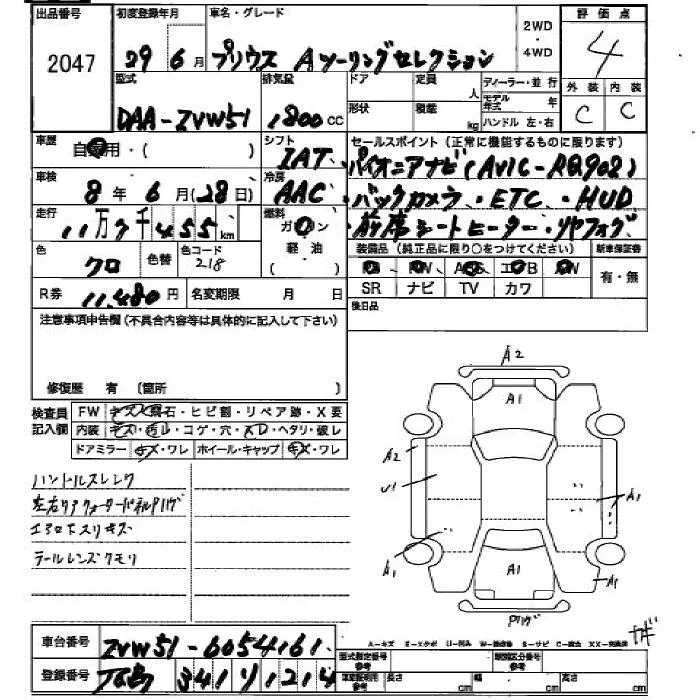 出品番号
2047
初度登録年月
29年6月
車名・グレード
プリウス Aツーリングセレクション
2WD
・
4WD
評価点
4
外装 内装
C C
型式
DAA-ZVW51
排気量
1800cc
ドア
形状
定員
人
積載
kg
ディーラー・並行
モデル年式 年
ハンドル 左・右
車歴
自家用・( )
シフト
IAT
セールスポイント(正常に機能するものに限ります)
・パイオニアナビ(AVIC-RQ902)
・バックカメラ・ETC・HUD
・前席シートヒーター・リヤフォグ
車検
8年6月(28日)
冷房
AAC
走行
11万7千455km
燃料
ガソリン
軽油
・( )
色
クロ
色替
色コード
218
装備品(純正品に限り○をつけてください)
新車保証書
有・無
SR ナビ TV カワ
R券
11,480円
名変期限 月 日
後日品
注意事項申告欄(不具合内容等は具体的に記入して下さい)
修復歴 有 〔箇所 〕
検査員記入欄
FW キズ・飛石・ヒビ割・リペア跡・X要
内装 キズ・汚レ・コゲ・穴・スレ・ヘタリ・破レ
ドアミラー キズ・ワレ ホイール・キャップ キズ・ワレ
ハンドルスレンク
左右リアクォーターパネルPハゲ
エアロ下スリキズ
テールレンズクモリ
A2
A1
A2
U1
A1
A1
A1
A1
Pハゲ
車台番号
ZVW51-6054161
登録番号
341 1214
A-キズ E-エクボ U-凹み W-補修跡 S-サビ C-腐蝕 XX-交換済
型式指定番号
参考
類別区分番号
参考
長さ cm 幅 cm 高さ cm